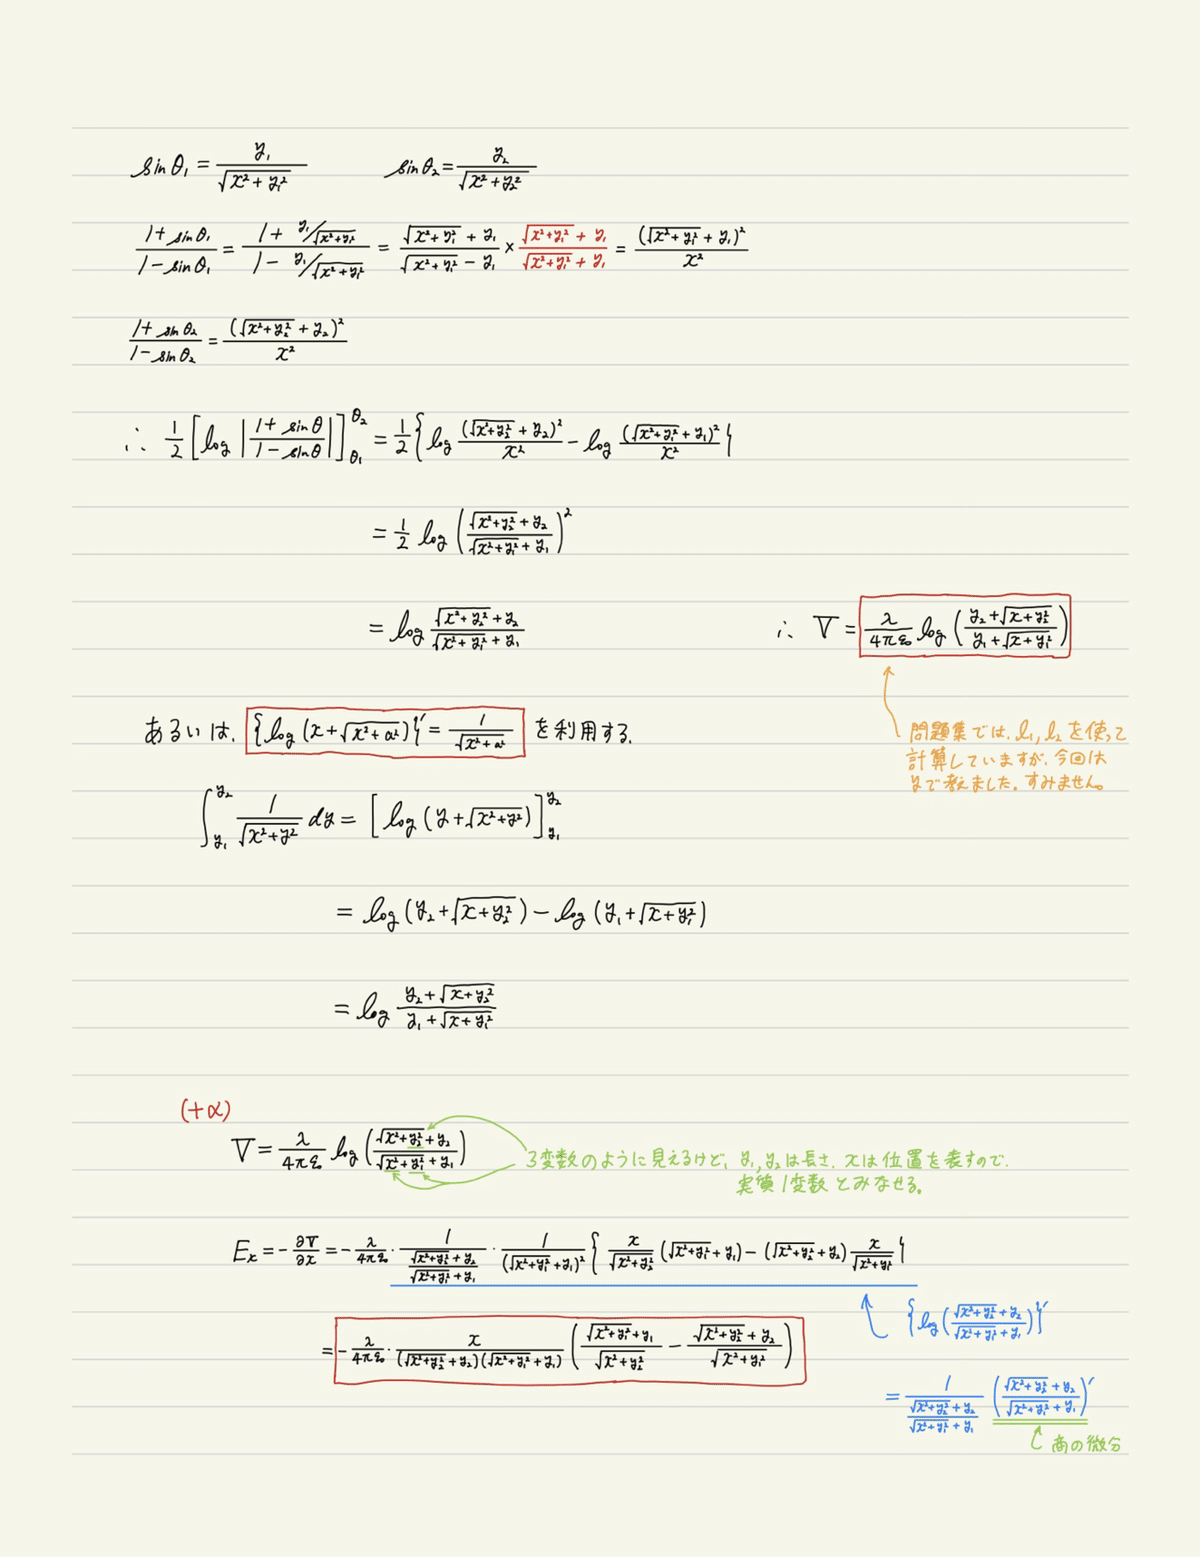 sinθ₁ = y₁/√(x²+y₁²)　　sinθ₂ = y₂/√(x²+y₂²)
(1+sinθ₁)/(1−sinθ₁) = (1+y₁/√(x²+y₁²))/(1−y₁/√(x²+y₁²)) = (√(x²+y₁²)+y₁)/(√(x²+y₁²)−y₁) × (√(x²+y₁²)+y₁)/(√(x²+y₁²)+y₁) = (√(x²+y₁²)+y₁)²/x²
(1+sinθ₂)/(1−sinθ₂) = (√(x²+y₂²)+y₂)²/x²
∴ 1/2 [log|(1+sinθ)/(1−sinθ)|]_θ₁^θ₂ = 1/2{log (√(x²+y₂²)+y₂)²/x² − log (√(x²+y₁²)+y₁)²/x²}
= 1/2 log((√(x²+y₂²)+y₂)/(√(x²+y₁²)+y₁))²
= log (√(x²+y₂²)+y₂)/(√(x²+y₁²)+y₁)
∴ V = λ/4πε₀ log((y₂+√(x+y₂²))/(y₁+√(x+y₁²)))
問題集では、l₁, l₂を使って
計算していますが、今回は
yで考えました。すみません。
あるいは、{log(x+√(x²+a²))}′ = 1/√(x²+a²) を利用する。
∫_y₁^y₂ 1/√(x²+y²) dy = [log(y+√(x²+y²))]_y₁^y₂
= log(y₂+√(x+y₂²)) − log(y₁+√(x+y₁²))
= log (y₂+√(x+y₂²))/(y₁+√(x+y₁²))
(+α)
V = λ/4πε₀ log((√(x²+y₂²)+y₂)/(√(x²+y₁²)+y₁))
3変数のように見えるけど、y₁, y₂は長さ、xは位置を表すので、
実質1変数とみなせる。
Eₓ = −∂V/∂x = −λ/4πε₀ · 1/((√(x²+y₂²)+y₂)/(√(x²+y₁²)+y₁)) · 1/(√(x²+y₁²)+y₁)² {x/√(x²+y₂²) (√(x²+y₁²)+y₁) − (√(x²+y₂²)+y₂) x/√(x²+y₁²)}
{log((√(x²+y₂²)+y₂)/(√(x²+y₁²)+y₁))}′
= −λ/4πε₀ · x/((√(x²+y₂²)+y₂)(√(x²+y₁²)+y₁)) ((√(x²+y₁²)+y₁)/√(x²+y₂²) − (√(x²+y₂²)+y₂)/√(x²+y₁²))
= 1/((√(x²+y₂²)+y₂)/(√(x²+y₁²)+y₁)) ((√(x²+y₂²)+y₂)/(√(x²+y₁²)+y₁))′
商の微分